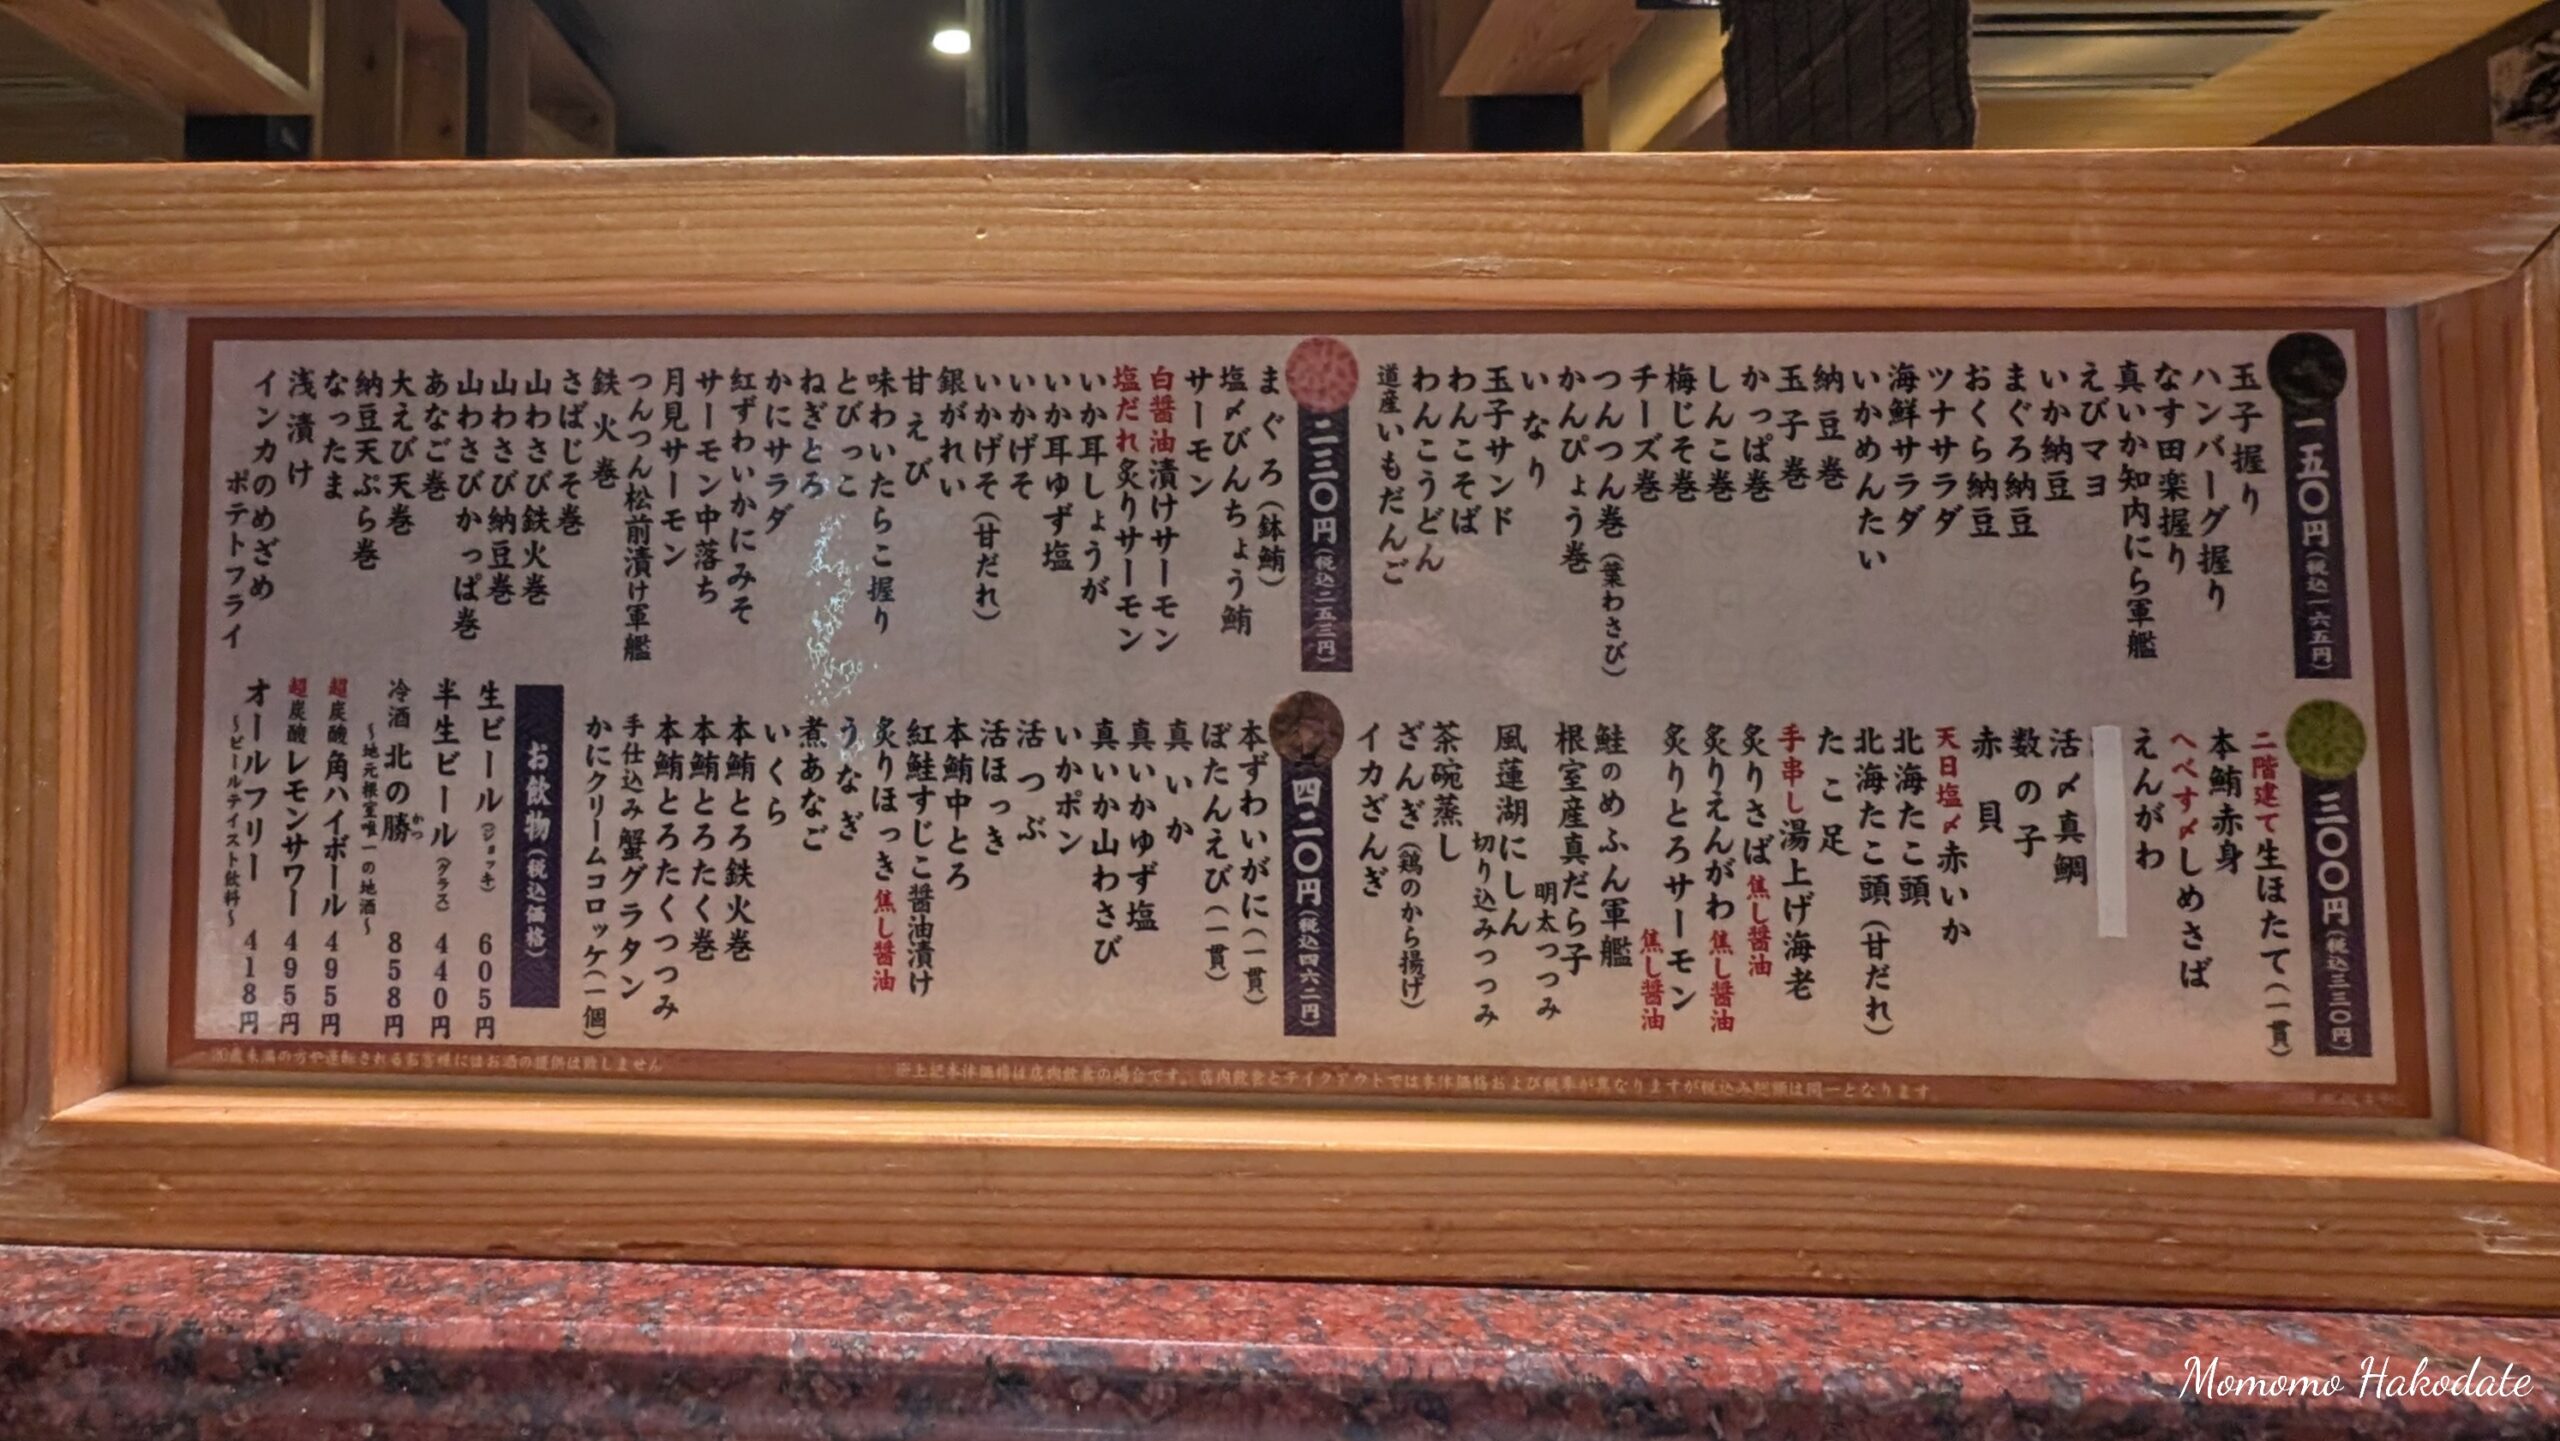 一五〇円(税込一六五円)
玉子握り
ハンバーグ握り
なす田楽握り
真いか知内にら軍艦
えびマヨ
いか納豆
まぐろ納豆
おくら納豆
ツナサラダ
海鮮サラダ
いかめんたい
納豆巻
玉子巻
かっぱ巻
しんこ巻
梅じそ巻
チーズ巻
つんつん巻(葉わさび)
かんぴょう巻
いなり
玉子サンド
わんこそば
わんこうどん
道産いもだんご
二三〇円(税込二五三円)
まぐろ(鉢鮪)
塩〆びんちょう鮪
サーモン
白醤油漬けサーモン
塩だれ炙りサーモン
いか耳しょうが
いか耳ゆず塩
いかげそ
いかげそ(甘だれ)
銀がれい
甘えび
味わいたらこ握り
とびっこ
ねぎとろ
かにサラダ
紅ずわいかにみそ
サーモン中落ち
月見サーモン
つんつん松前漬け軍艦
鉄火巻
さばじそ巻
山わさび鉄火巻
山わさび納豆巻
山わさびかっぱ巻
あなご巻
大えび天巻
納豆天ぷら巻
なったま
浅漬け
インカのめざめ
ポテトフライ
三〇〇円(税込三三〇円)
二階建て生ほたて(一貫)
本鮪赤身
へべす〆しめさば
えんがわ
活〆真鯛
数の子
赤貝
天日塩〆赤いか
北海たこ頭
北海たこ頭(甘だれ)
たこ足
手串し湯上げ海老
炙りさば焦し醤油
炙りえんがわ焦し醤油
炙りとろサーモン
焦し醤油
鮭のめふん軍艦
根室産真だら子
明太つつみ
風蓮湖にしん
切り込みつつみ
茶碗蒸し
ざんぎ(鶏のから揚げ)
イカざんぎ
四二〇円(税込四六二円)
本ずわいがに(一貫)
ぼたんえび(一貫)
真いか
真いかゆず塩
真いか山わさび
いかポン
活つぶ
活ほっき
本鮪中とろ
紅鮭すじこ醤油漬け
炙りほっき焦し醤油
うなぎ
煮あなご
いくら
本鮪とろ鉄火巻
本鮪とろたく巻
本鮪とろたくつつみ
手仕込み蟹グラタン
かにクリームコロッケ(一個)
お飲物(税込価格)
生ビール(ジョッキ) 605円
半生ビール(グラス) 440円
冷酒 北の勝 858円
かつ
〜地元根室唯一の地酒〜
超炭酸角ハイボール 495円
超炭酸レモンサワー 495円
オールフリー 418円
〜ビールテイスト飲料〜
※上記本体価格は店内飲食の場合です。店内飲食とテイクアウトでは本体価格および税率が異なりますが税込み総額は同一となります。
20歳未満の方や運転されるお客様にはお酒の提供は致しません
Momomo Hakodate